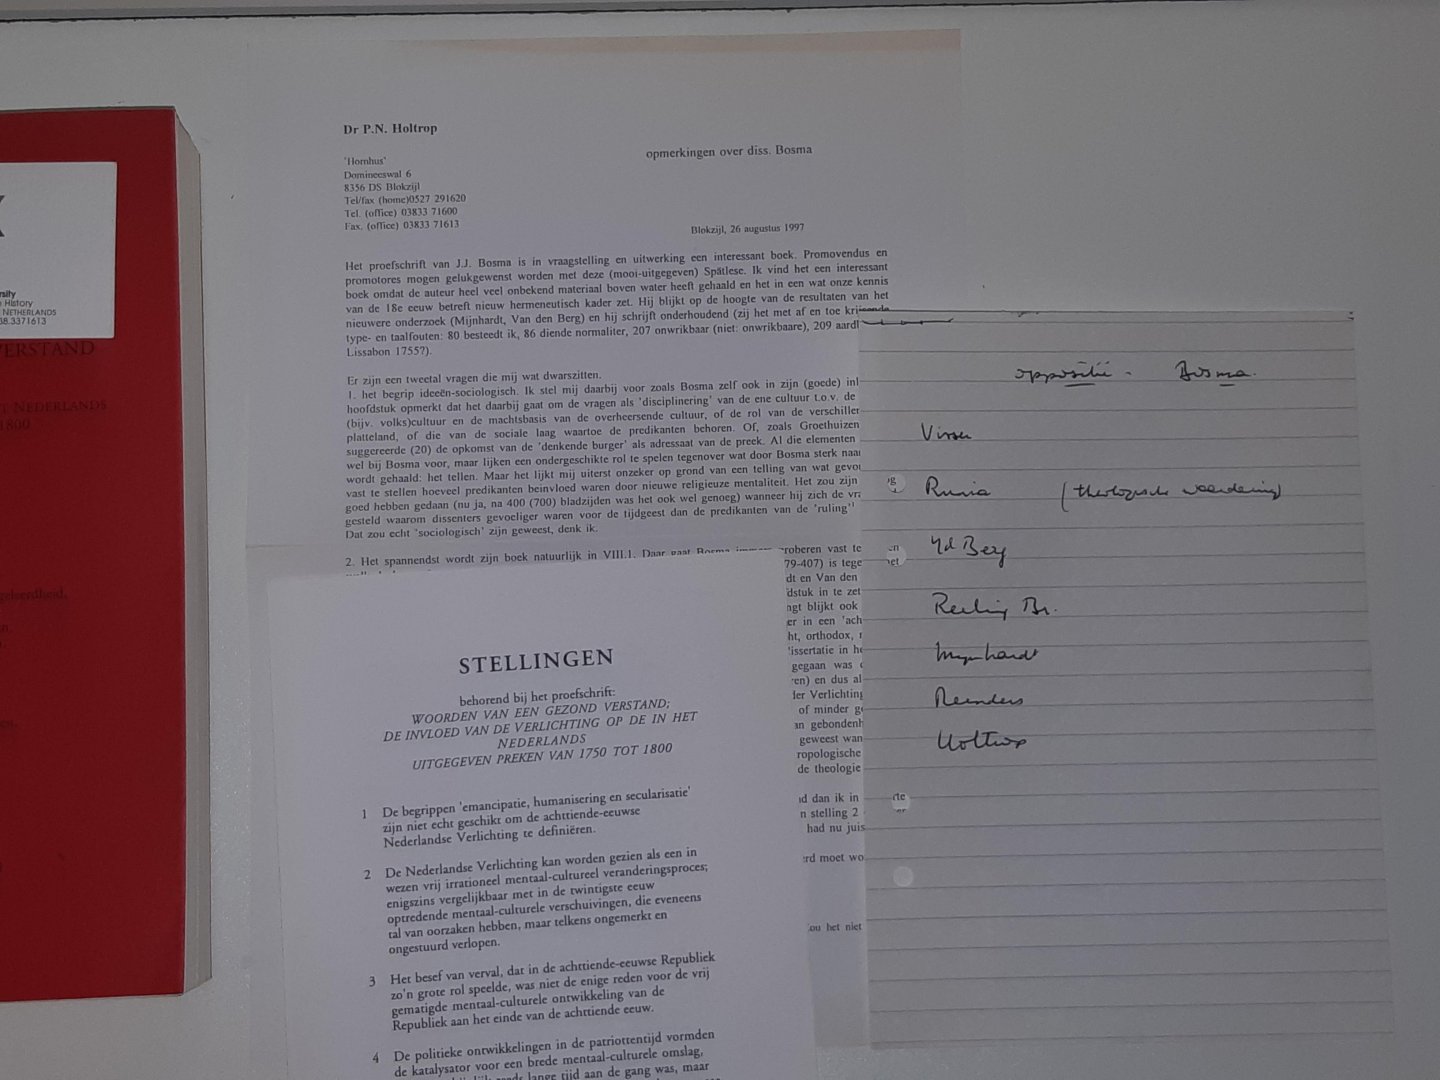 rsity
History
NETHERLANDS
38.3371613
ERSTAND
NEDERLANDS
1800
geleerdheid,
Dr P.N. Holtrop
opmerkingen over diss. Bosma
'Hornhus'
Domineeswal 6
8356 DS Blokzijl
Tel/fax (home)0527 291620
Tel. (office) 03833 71600
Fax. (office) 03833 71613
Blokzijl, 26 augustus 1997
Het proefschrift van J.J. Bosma is in vraagstelling en uitwerking een interessant boek. Promovendus en
promotores mogen gelukgewenst worden met deze (mooi-uitgegeven) Spätlese. Ik vind het een interessant
boek omdat de auteur heel veel onbekend materiaal boven water heeft gehaald en het in een wat onze kennis
van de 18e eeuw betreft nieuw hermeneutisch kader zet. Hij blijkt op de hoogte van de resultaten van het
nieuwere onderzoek (Mijnhardt, Van den Berg) en hij schrijft onderhoudend (zij het met af en toe krijsende
type- en taalfouten: 80 besteedt ik, 86 diende normaliter, 207 onwrikbaar (niet: onwrikbaare), 209 aardl
Lissabon 1755?).
Er zijn een tweetal vragen die mij wat dwarszitten.
1. het begrip ideeën-sociologisch. Ik stel mij daarbij voor zoals Bosma zelf ook in zijn (goede) inl
hoofdstuk opmerkt dat het daarbij gaat om de vragen als 'disciplinering' van de ene cultuur t.o.v. de
(bijv. volks)cultuur en de machtsbasis van de overheersende cultuur, of de rol van de verschiller
platteland, of die van de sociale laag waartoe de predikanten behoren. Of, zoals Groethuizen
suggereerde (20) de opkomst van de 'denkende burger' als adressaat van de preek. Al die elementen
wel bij Bosma voor, maar lijken een ondergeschikte rol te spelen tegenover wat door Bosma sterk naar
wordt gehaald: het tellen. Maar het lijkt mij uiterst onzeker op grond van een telling van wat gevo
vast te stellen hoeveel predikanten beinvloed waren door nieuwe religieuze mentaliteit. Het zou zijn
goed hebben gedaan (nu ja, na 400 (700) bladzijden was het ook wel genoeg) wanneer hij zich de vra
gesteld waarom dissenters gevoeliger waren voor de tijdgeest dan de predikanten van de 'ruling'
Dat zou echt 'sociologisch' zijn geweest, denk ik.
2. Het spannendst wordt zijn boek natuurlijk in VIII.1. Daar gaat Bosma immers proberen vast te
79-407) is tege
dt en Van den
dstuk in te zet
ngt blijkt ook
er in een 'ach
ht, orthodox, r
issertatie in he
gegaan was
en) en dus al
ler Verlichting
of minder g
an gebondenh
geweest wan
ropologische
de theologie
id dan ik in
n stelling 2
had nu juis
rd moet wo
ou het niet
STELLINGEN
behorend bij het proefschrift:
WOORDEN VAN EEN GEZOND VERSTAND;
DE INVLOED VAN DE VERLICHTING OP DE IN HET
NEDERLANDS
UITGEGEVEN PREKEN VAN 1750 TOT 1800
1 De begrippen 'emancipatie, humanisering en secularisatie'
zijn niet echt geschikt om de achttiende-eeuwse
Nederlandse Verlichting te definiëren.
2 De Nederlandse Verlichting kan worden gezien als een in
wezen vrij irrationeel mentaal-cultureel veranderingsproces;
enigszins vergelijkbaar met in de twintigste eeuw
optredende mentaal-culturele verschuivingen, die eveneens
tal van oorzaken hebben, maar telkens ongemerkt en
ongestuurd verlopen.
3 Het besef van verval, dat in de achttiende-eeuwse Republiek
zo'n grote rol speelde, was niet de enige reden voor de vrij
gematigde mentaal-culturele ontwikkeling van de
Republiek aan het einde van de achttiende eeuw.
4 De politieke ontwikkelingen in de patriottentijd vormden
de katalysator voor een brede mentaal-culturele omslag,
lange tijd aan de gang was, maar
oppositie - Bosma.
Visser
Runia (theologische waardering)
vd Berg
Reeling Br.
Mijnhardt
Reenders
Holtrop